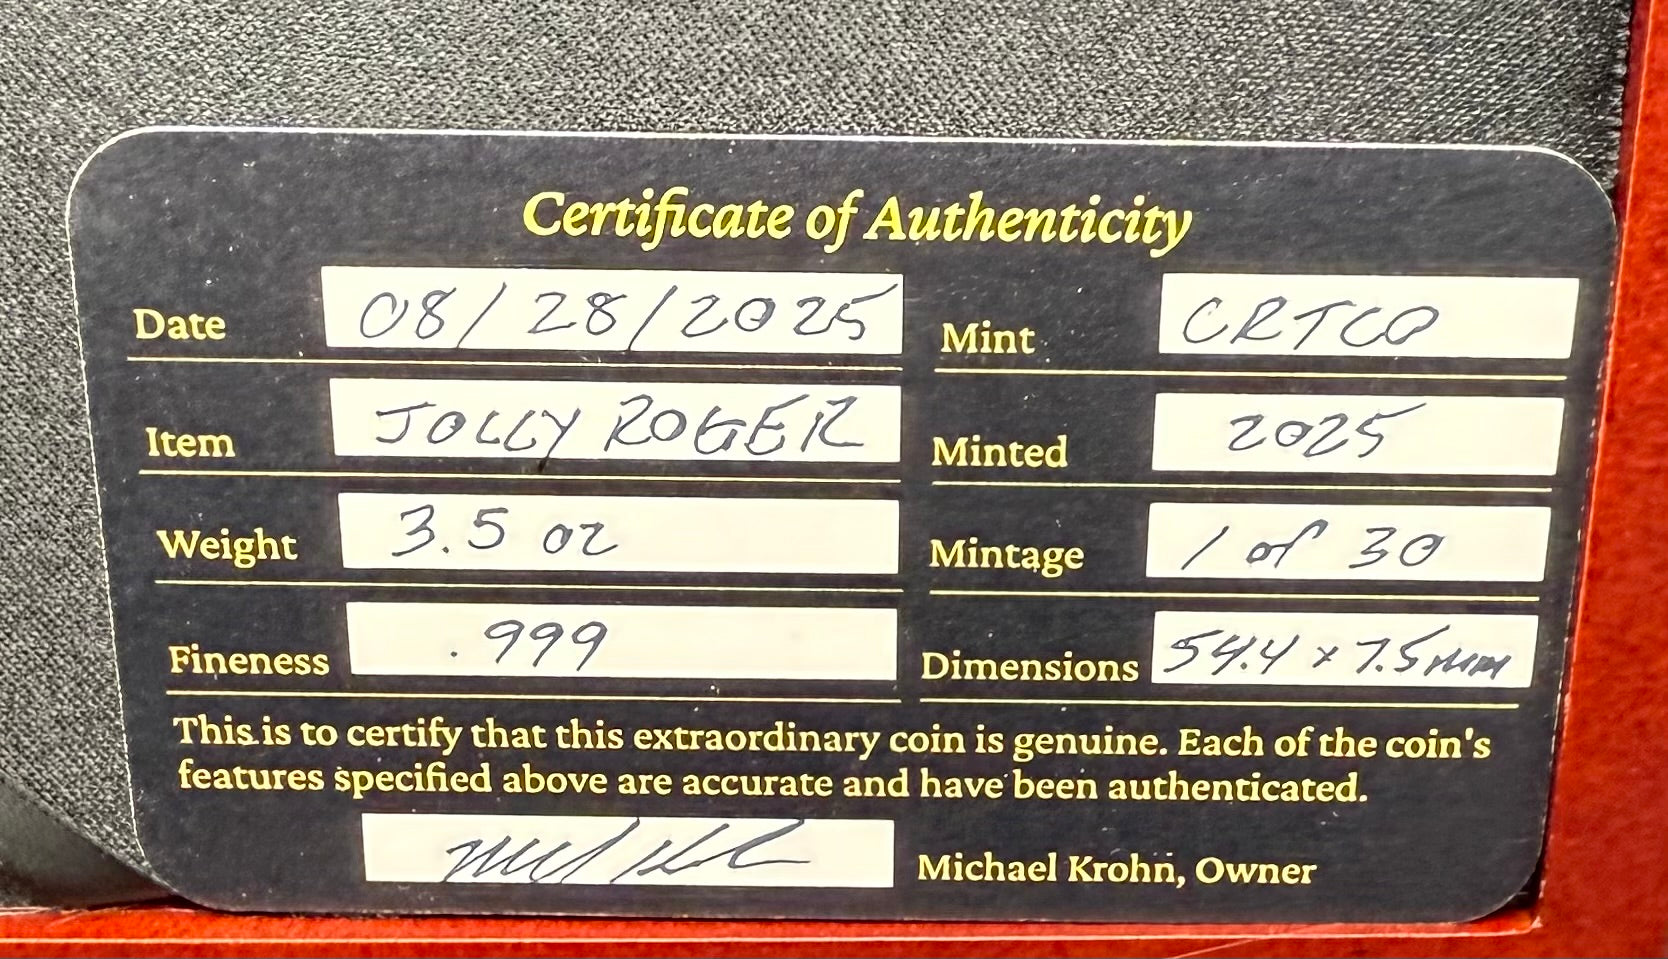 Certificate of Authenticity
Date 08/28/2025 Mint CRTCO
Item JOLLY ROGER Minted 2025
Weight 3.5 oz Mintage 1 of 30
Fineness .999 Dimensions 54.4 x 7.5mm
This is to certify that this extraordinary coin is genuine. Each of the coin's
features specified above are accurate and have been authenticated.
Michael Krohn, Owner